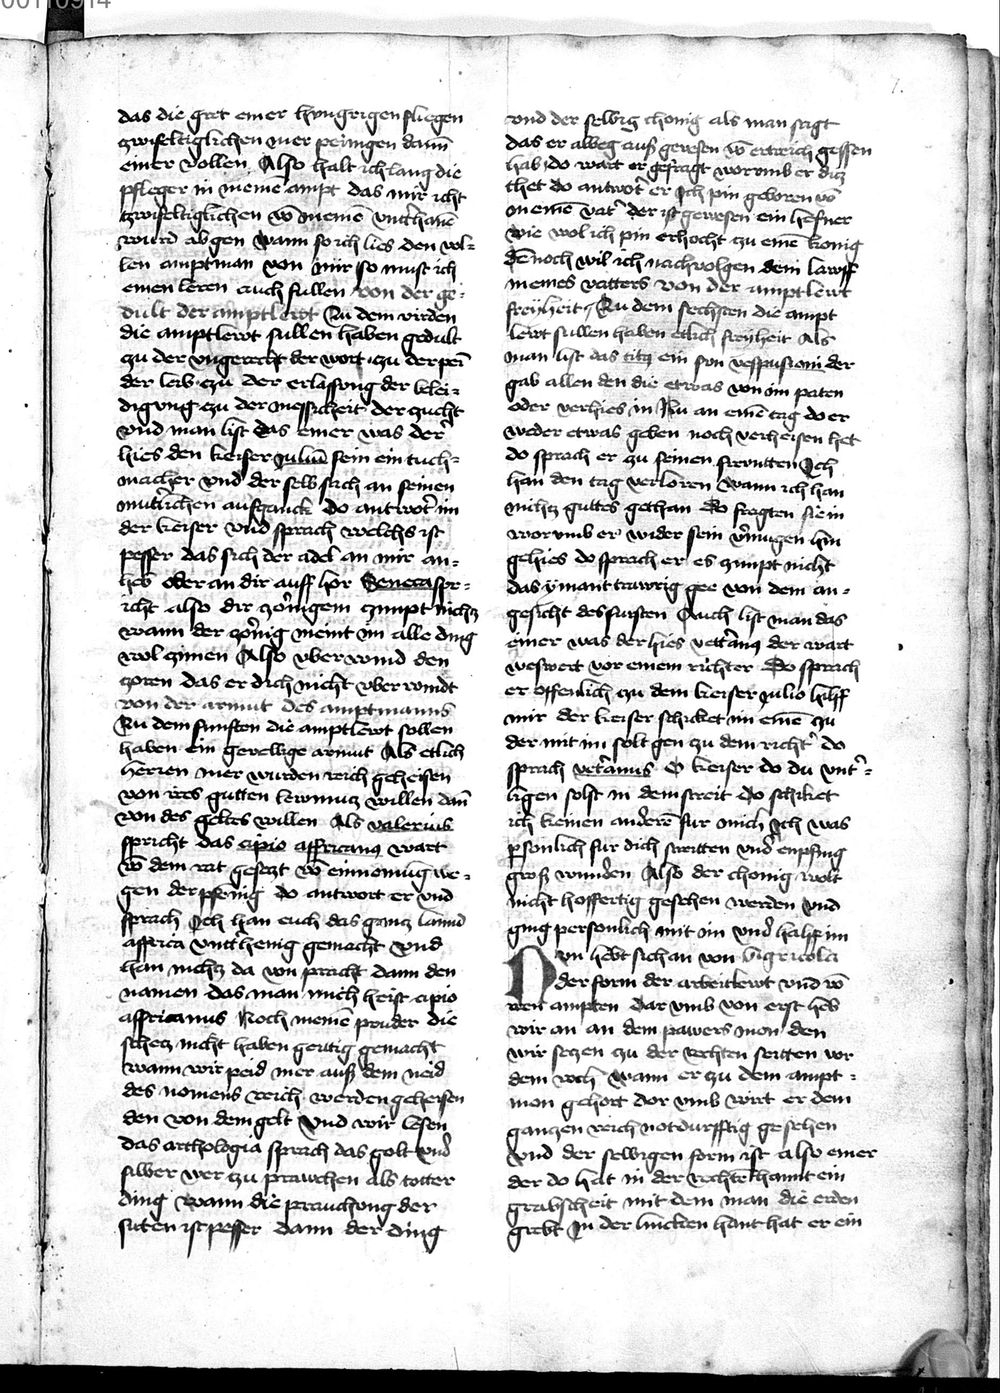 00110914
7.
das die grct einer hyngrigen fliegen
zwifeltiglichen mer peinigen dann
einer vollen Also halt ich lang die
pfleger in meinē ampt das mir icht
zwifeltiglichen vō meinē vnttˀhanē
wurd abgen wann so ich lies den vol⸗
len amptman von mir so must ich
einen leren auch fullen von der ge⸗
dult der amptlewt Zu dem virden
die amptlewt sullen haben gedult
zu der vngerecht der wort zu der pei
der leib zu der erlassung der belei⸗
digung zu der messicheit der zucht
vnd man list das einer was der
hies den keiser Juliū sein ein tuch⸗
macher vnd der selb sach an seinen
mutˀlichen aufganck do antwortˀ im
der keiser vnd sprach welchs ist
pesser das sich der adel an mir an⸗
heb oder an dir auff hor Seneca spr⸗
icht also dir zornigem zimpt nichtz
wann der zornig meint im alle ding
wol zimen Also vberwind den
zoren das er dich nicht vberwindt
von der armut des amptmanns
Zu dem funften die amptlewt sollen
haben ein gevellige armut Als etlich
herren mer wurden reich geheisen
von irs gutten lewmutz willen dañ
von des geltes willen Als valerius
spricht das cipio affricanus wart
vō dem rat gesetzt vō einnemūg we⸗
gen der pfenig do antwort er vnd
sprach Ich han euch das gantz lannd
affrica vnttˀhenig gemacht vnd
han nichtz da von pracht dann den
namen das man mich heist cipio
affricanus Noch meinē pruder die
schetz nicht haben geitig gemacht
wann wir peid mer auß dem neid
des nomens reich werden geheisen
den von dem gelt Vnd wir lesen
das arthologia sprach das golt vnd
silber wer zu prauchen als totter
ding wann die prauchung der
siten ist pesser dann der ding
vnd der selbig chonig als man sagt
das er alweg auß gevesen vō ertreich gessen
hab do wart er gefragt worumb er ditz
thet do antwortˀ er Ich pin geboren vō
meinē vatˀ der ist gewesen ein hefner
wie wol ich pin erhocht zu einē konig
dēnoch wil ich nachvolgen dem lawff
meines vatters von der amptlewt
freyheit Zu dem sechsten die ampt
lewt sullen haben etlich freyheit Als
man list das titq ein sun vespasiani der
gab allen den die etwas von im paten
oder verhies in Nu an einē tag do er
weder etwas geben noch verheisen het
do sprach er zu seinen freuntten Ich
han den tag verloren wann ich han
nichtz guttes gethan Do fragten sie in
worvmb er wider sein vˀmugen hin
gehies do sprach er es zimpt nicht
das ymant trawrig gee von dem an⸗
gesicht des fursten Auch list man das
einer was der hies vetˀanq der wart
weswert vor einem richter Do sprach
er offenlich zu dem keiser Julio hilff
mir der keiser schicket im einē zu
der mit im solt gen zu dem richtˀ do
sprach vetˀanus O keiser do du vntˀ⸗
ligen solst in dem streit do schicket
ich keinen anderē fur mich Ich was
psonlich fur dich streitten vnd enpfing
groß wunden Also der chonig wolt
nicht hoffertig gesehen werden vnd
ging personlich mit im vnd halff im
Nun hebt sich an von Agricola
der form der arbeitlewt vnd vō
iren ampten Dar vmb von erst heb
wir an an dem pawers mon den
wir setzen zu der rechten seitten vor
dem roch Wann er zu dem ampt⸗
mon gehort dor vmb wirt er dem
gantzen reich notdurfftig gesehen
vnd der selbigen form ist also einer
der do hat in der rechtē hannt ein
grabscheit mit dem man die erden
grebt In der lincken hant hat er ein